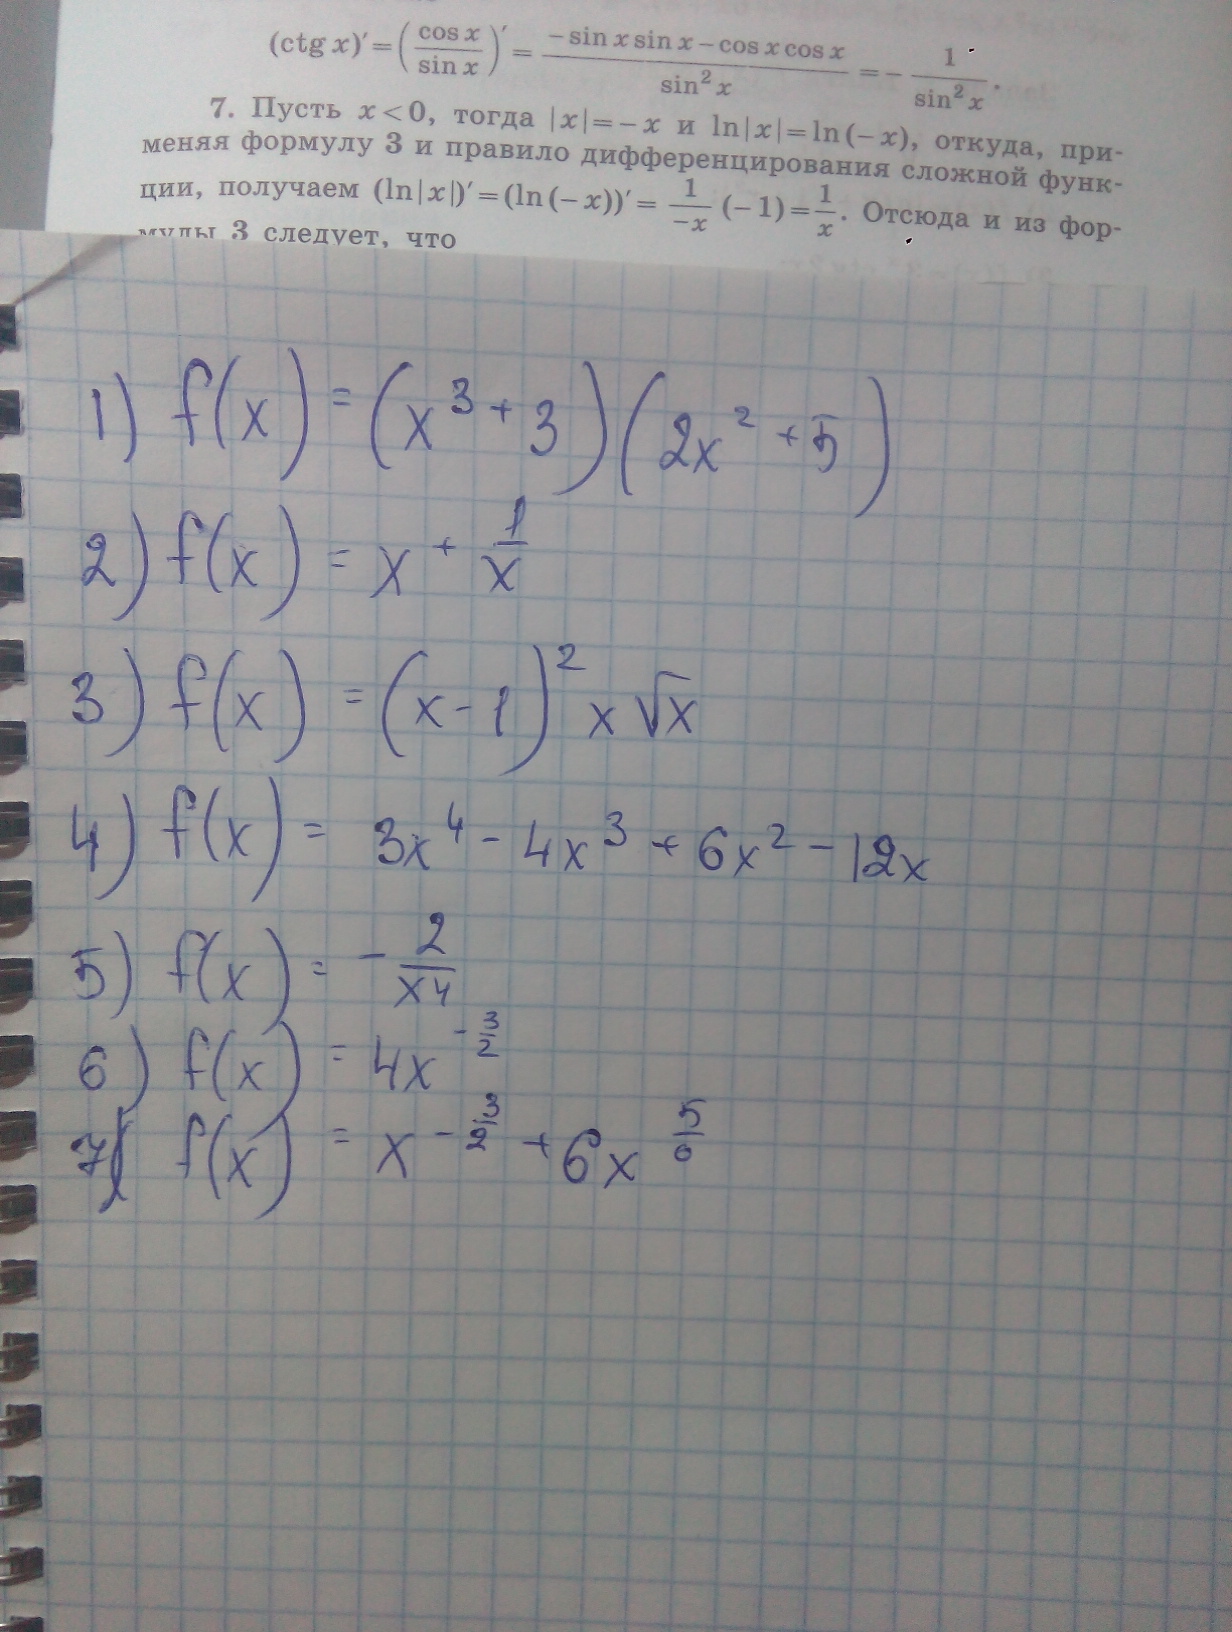 (ctg x)′ = (cos x / sin x)′ = (−sin x sin x − cos x cos x) / sin² x = − 1 / sin² x.
7. Пусть x < 0, тогда |x| = −x и ln|x| = ln(−x), откуда, при-
меняя формулу 3 и правило дифференцирования сложной функ-
ции, получаем (ln|x|)′ = (ln(−x))′ = 1/−x (−1) = 1/x. Отсюда и из фор-
мулы 3 следует, что
1) f(x) = (x³ + 3)(2x² + 5)
2) f(x) = x + 1/x
3) f(x) = (x − 1)² x √x
4) f(x) = 3x⁴ − 4x³ + 6x² − 12x
5) f(x) = − 2/x4
6) f(x) = 4x^(−3/2)
7) f(x) = x^(−3/2) + 6x^(5/6)